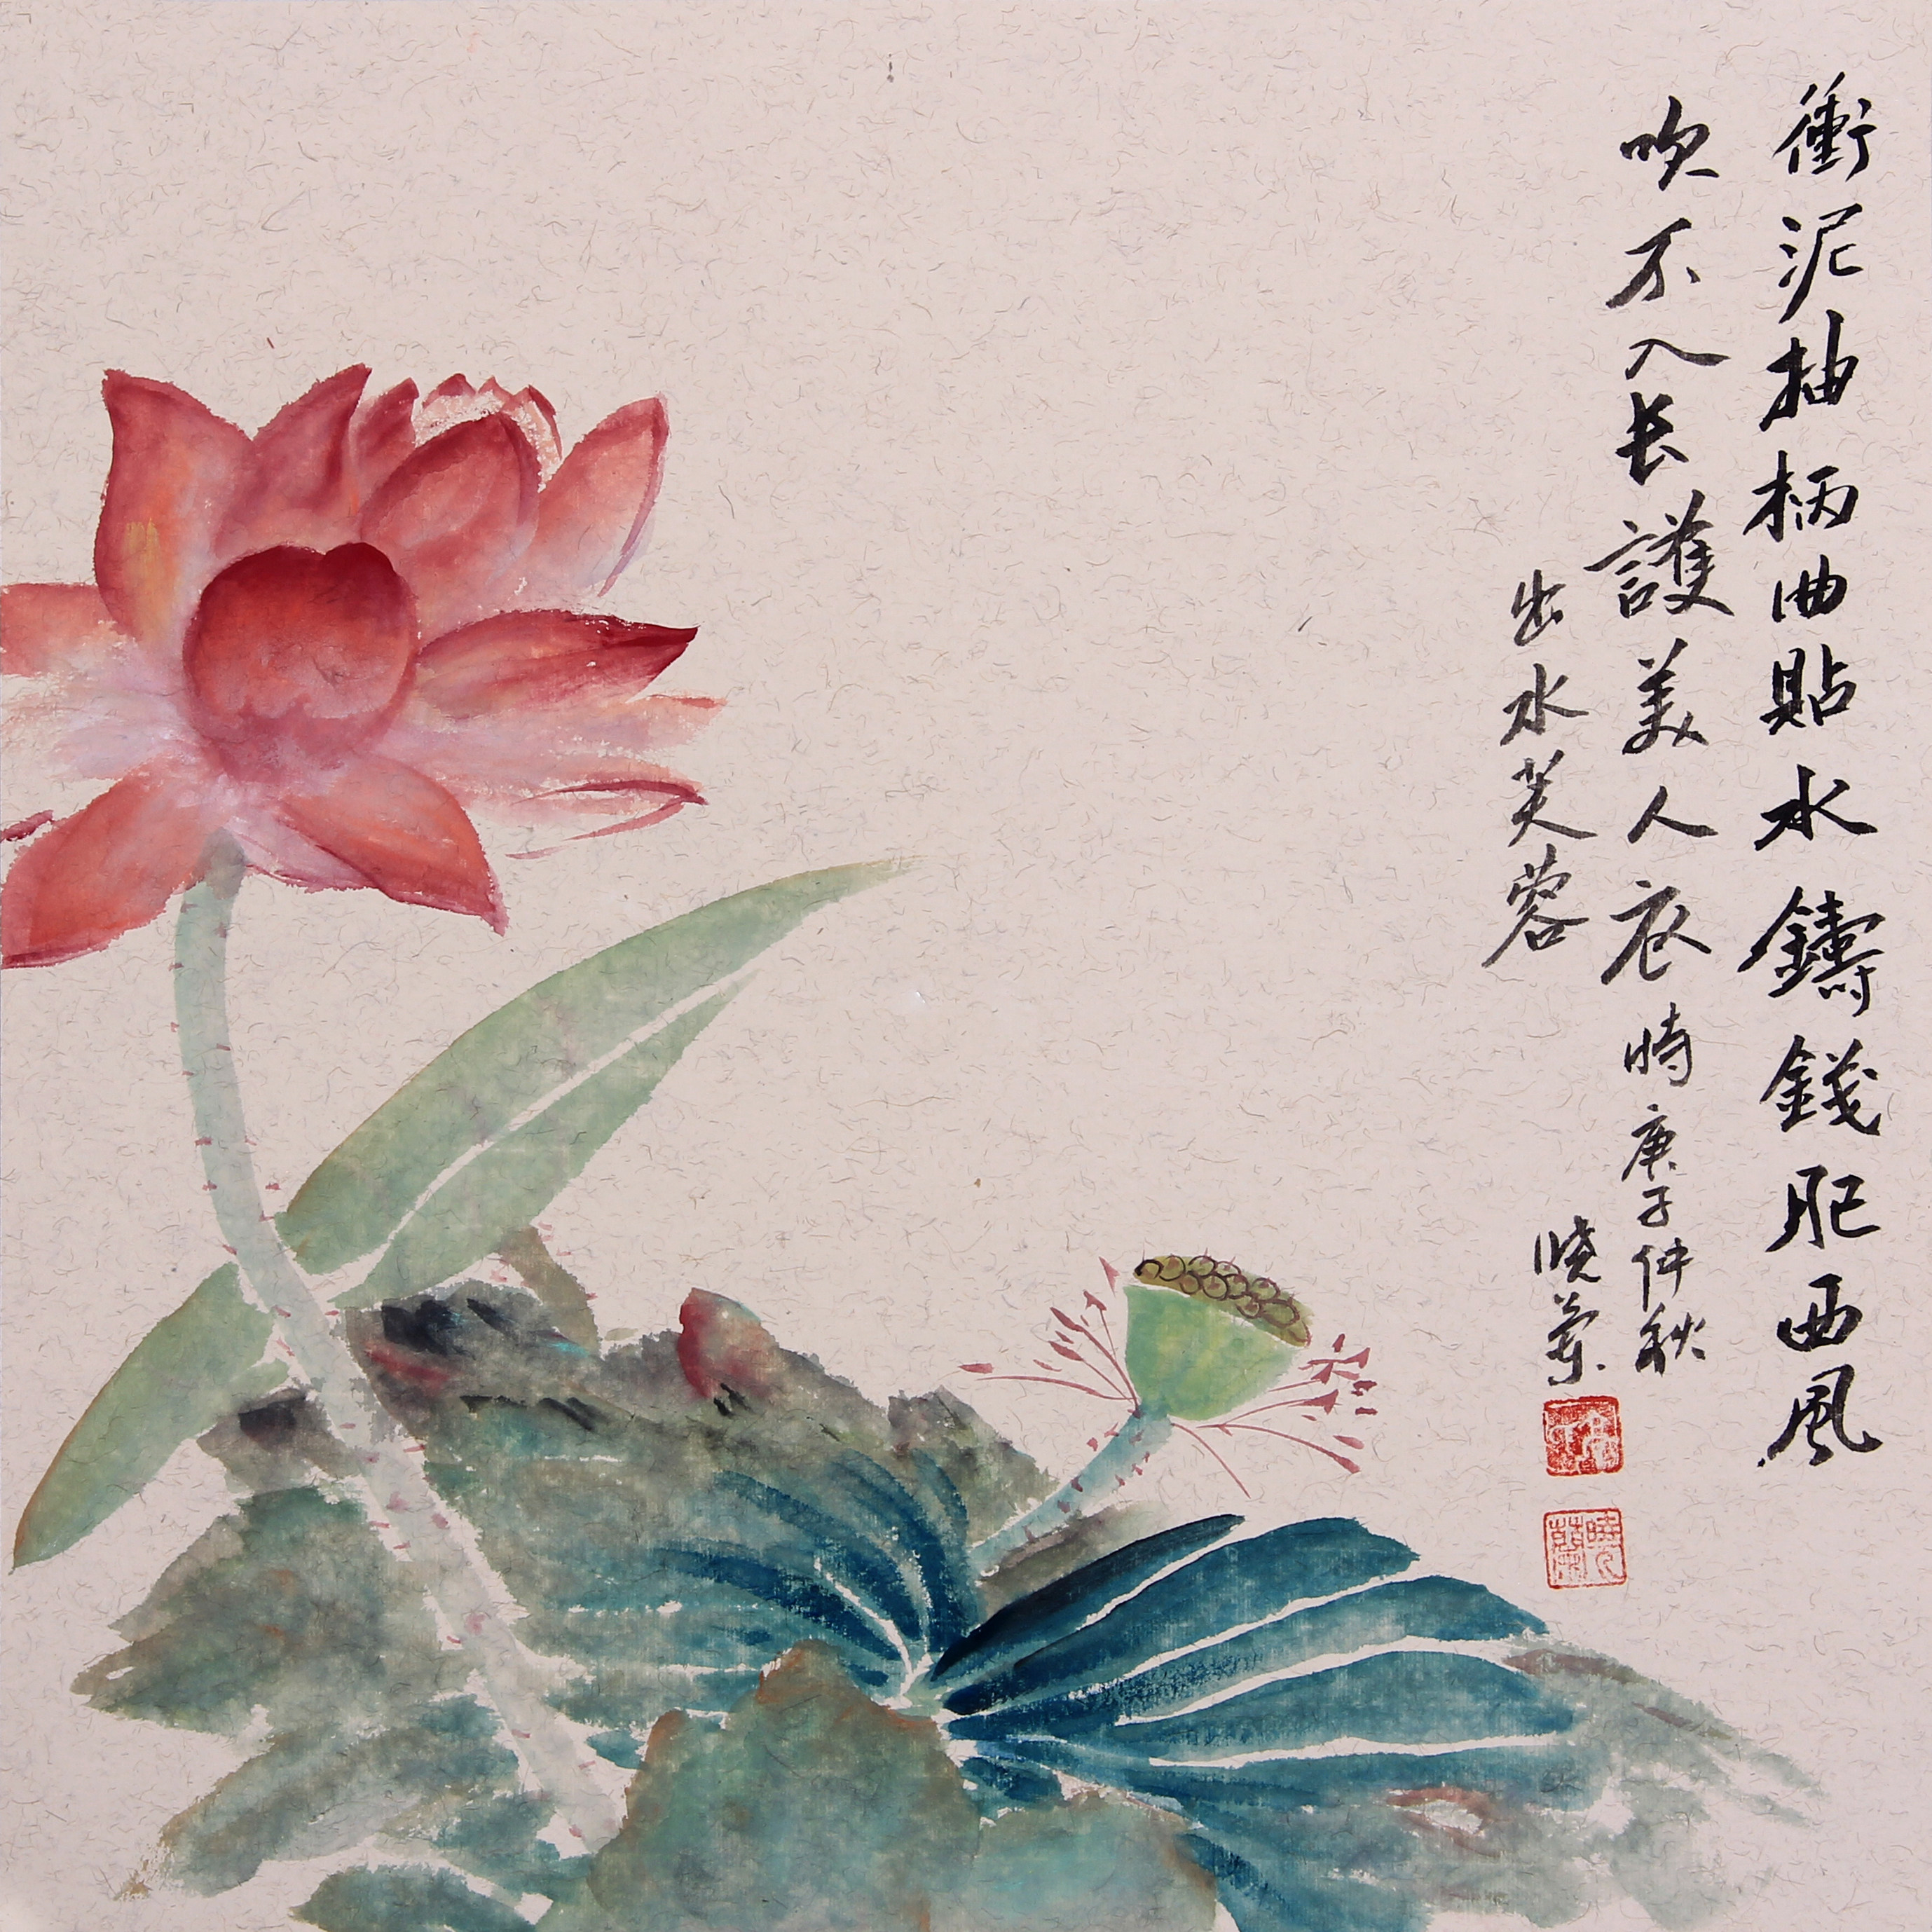 衝泥抽柄曲貼水鑄錢肥西風
吹不入长護美人衣時庚子仲秋
出水芙蓉
晓兰
曉蘭